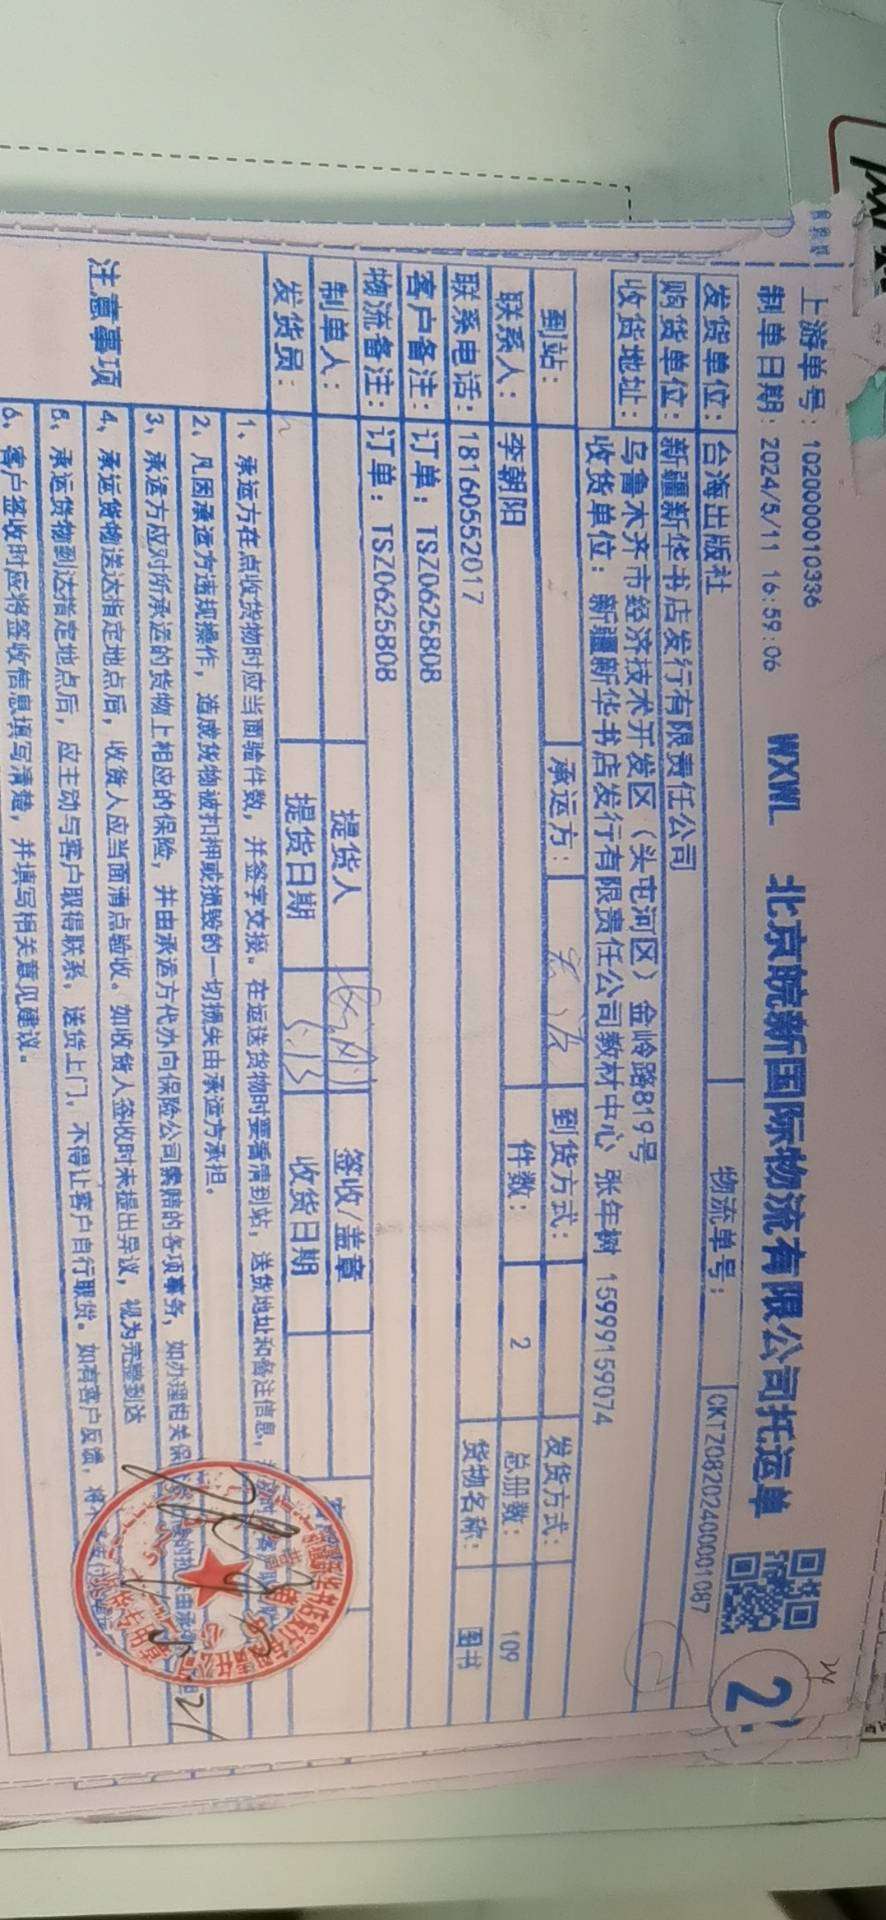 上游单号：1020000010336
制单日期：2024/5/11 16:59:06
WXWL 北京皖新国际物流有限公司托运单
2
发货单位：台海出版社 物流单号：CKTZ08202400001087
购货单位：新疆新华书店发行有限责任公司
收货地址：乌鲁木齐市经济技术开发区（头屯河区）金岭路819号
收货单位：新疆新华书店发行有限责任公司教材中心 张年树 15999159074
到站： 承运方： 到货方式： 发货方式：
联系人：李朝阳 件数：2 总册数：109
联系电话：18160552017 货物名称：图书
客户备注：订单：TSZ0625808
物流备注：订单：TSZ0625808
制单人： 提货人 签收/盖章
发货员： 提货日期 5.13 收货日期
注意事项
1、承运方在点收货物时应当面验件数，并签字交接。在运送货物时要看清到站，送货地址和备注信息，
2、凡因承运方违规操作，造成货物被扣押或损毁的一切损失由承运方承担。
3、承运方应对所承运的货物上相应的保险，并由承运方代办向保险公司索赔的各项事务，如办理相关保
4、承运货物送达指定地点后，收货人应当面清点验收。如收货人签收时未提出异议，视为完整到达
5、承运货物到达指定地点后，应主动与客户取得联系，送货上门，不得让客户自行取货。如有客户反馈，
6、客户签收时应将签收信息填写清楚，并填写相关意见建议。